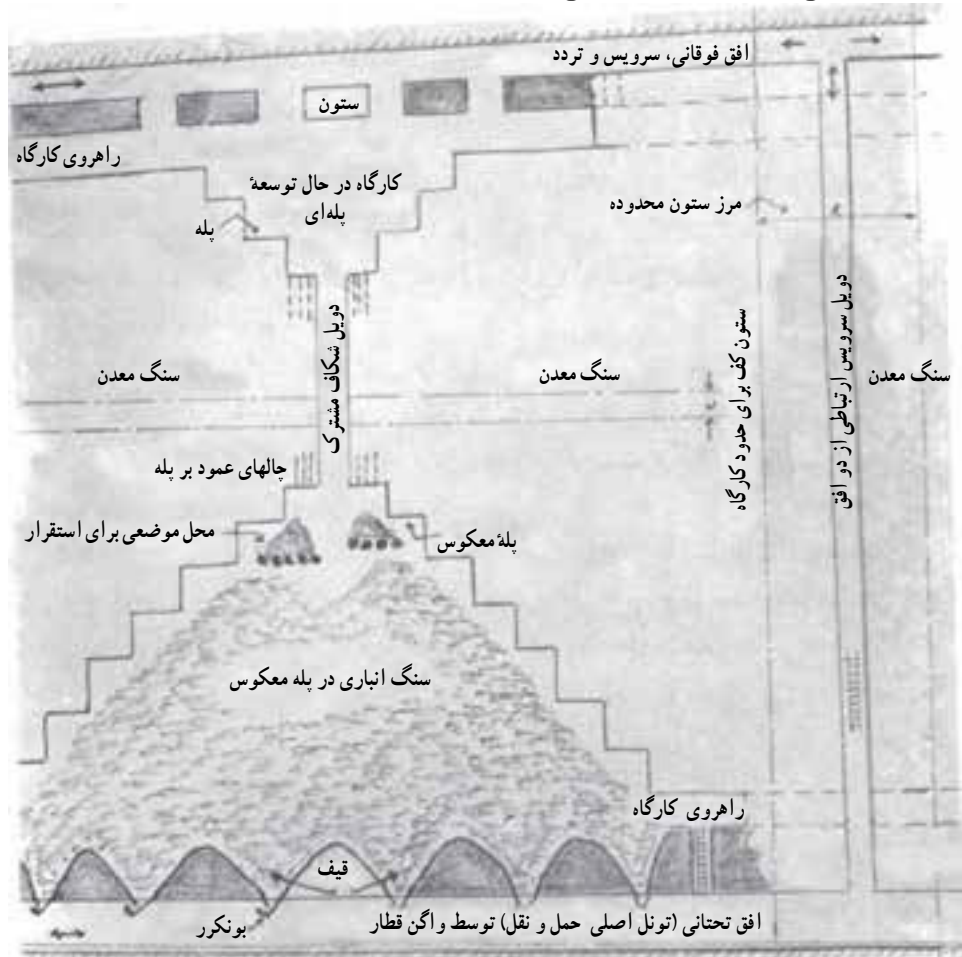 افق فوقانی، سرویس و تردد
ستون
راهروی کارگاه
کارگاه در حال توسعهٔ
پله‌ای
مرز ستون محدوده
پله
دویل شکاف مشترک
ستون کف برای حدود کارگاه
دویل سرویس ارتباطی از دو افق
سنگ معدن
سنگ معدن
سنگ معدن
چالهای عمود بر پله
محل موضعی برای استقرار
پلهٔ معکوس
سنگ انباری در پله معکوس
راهروی کارگاه
قیف
بونکرر
افق تحتانی (تونل اصلی حمل و نقل) توسط واگن قطار